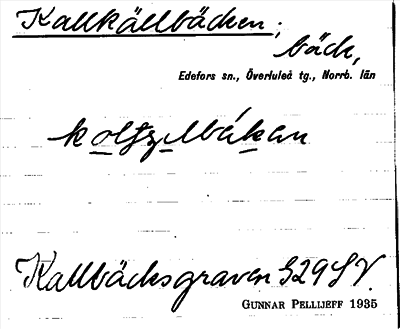 Kallkällbäcken;
bäck,
Edefors sn., Överluleå tg., Norrb. län
Kallbäcksgraven 329 SV.
GUNNAR PELLIJEFF 1935